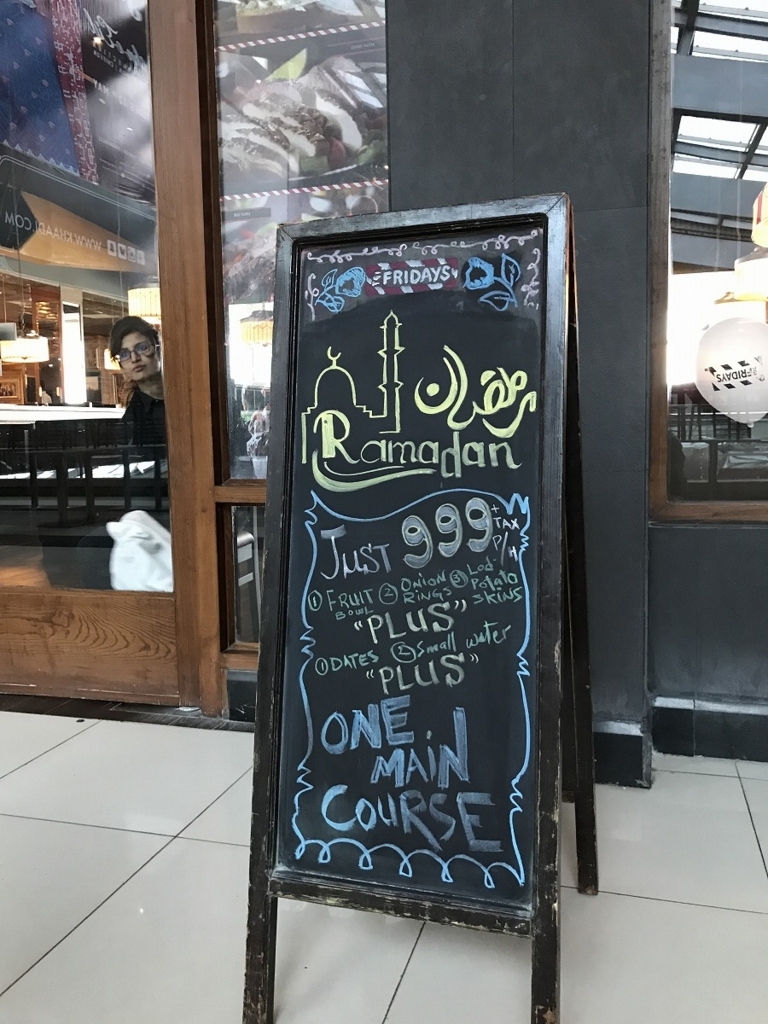 FRIDAYS
رمضان
Ramadan
JUST 999 + TAX P/H
① FRUIT BOWL ② ONION RINGS ③ Lod. Potato SKINS
"PLUS"
① DATES ② Small water
"PLUS"
ONE
MAiN
COURSE
WWW.KHAADI.COM
FRIDAYS